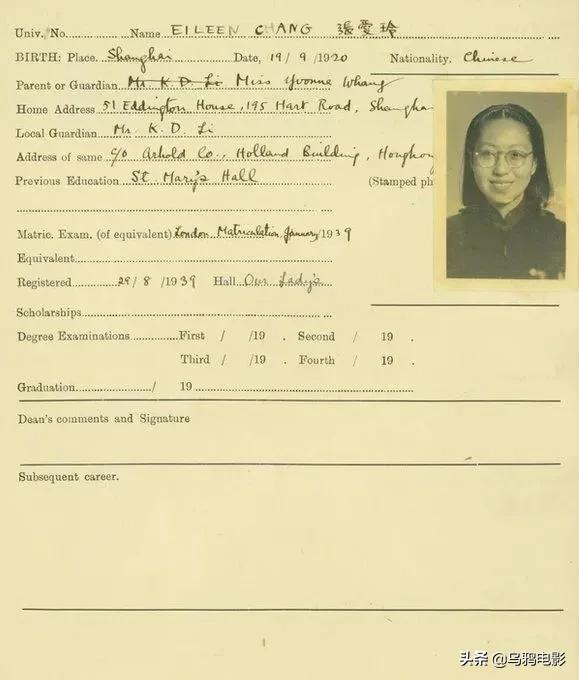 Univ. No. Name EILEEN CHANG 張愛玲
BIRTH: Place. Shanghai Date, 19/9/1920 Nationality, Chinese
Parent or Guardian Mr. K. D. Li Miss Yvonne Whang
Home Address 51 Eddington House, 195 Hart Road, Shangha
Local Guardian Mr. K. D. Li
Address of same c/o Arhold Co., Holland Building, Hongkong
Previous Education St. Mary's Hall
(Stamped ph
Matric. Exam. (of equivalent) London Matriculation, January, 1939
Equivalent
Registered 29/8/1939 Hall Our Lady's
Scholarships
Degree Examinations First / /19 . Second / 19 .
Third / /19 . Fourth / 19 .
Graduation / 19
Dean's comments and Signature
Subsequent career.
头条 @乌鸦电影